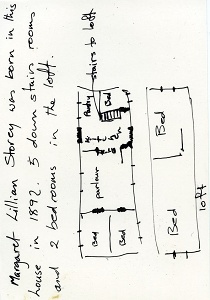 Margaret Lillian Storey was born in this
house in 1892. 5 down stairs rooms
and 2 bedrooms in the loft.
stairs to loft
Pantry
Bed
Kitchen
parlour
Bed
Bed
Bed
Bed
loft